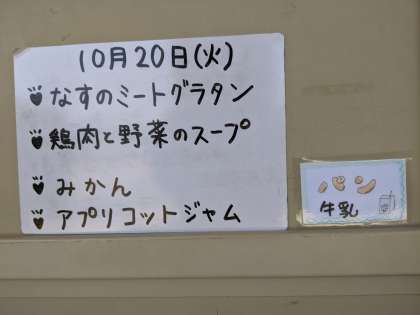 10月20日(火)
なすのミートグラタン
鶏肉と野菜のスープ
みかん
アプリコットジャム
パン
牛乳